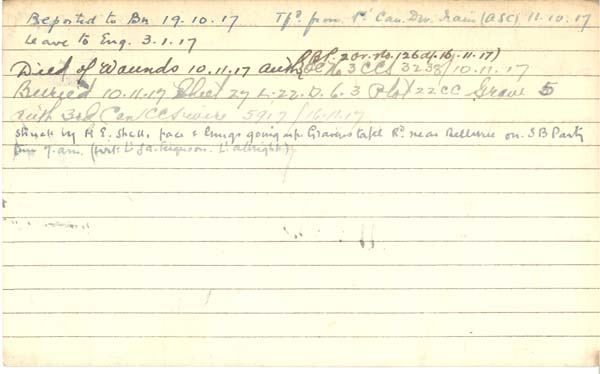 Reported to Bn 19.10.17 Tfd. from 1st Can. Div. Train (ASC) 11.10.17
Leave to Eng. 3.1.17
B.P. 2 or. no. (26 df. 16.11.17)
Died of Wounds 10.11.17 auth OC No 3 CCS 3232/10.11.17
Buried 10.11.17 Sheet 27 L.22.D.6.3 Plot 22CC Grave 5
Auth 3rd Can CCS wire 5917/16.11.17
struck by H.E. shell, face & lungs going up Gravenstafel Rd. near Bellevue on S B Party
7 am. Lt. Ferguson. Lt. Albright)